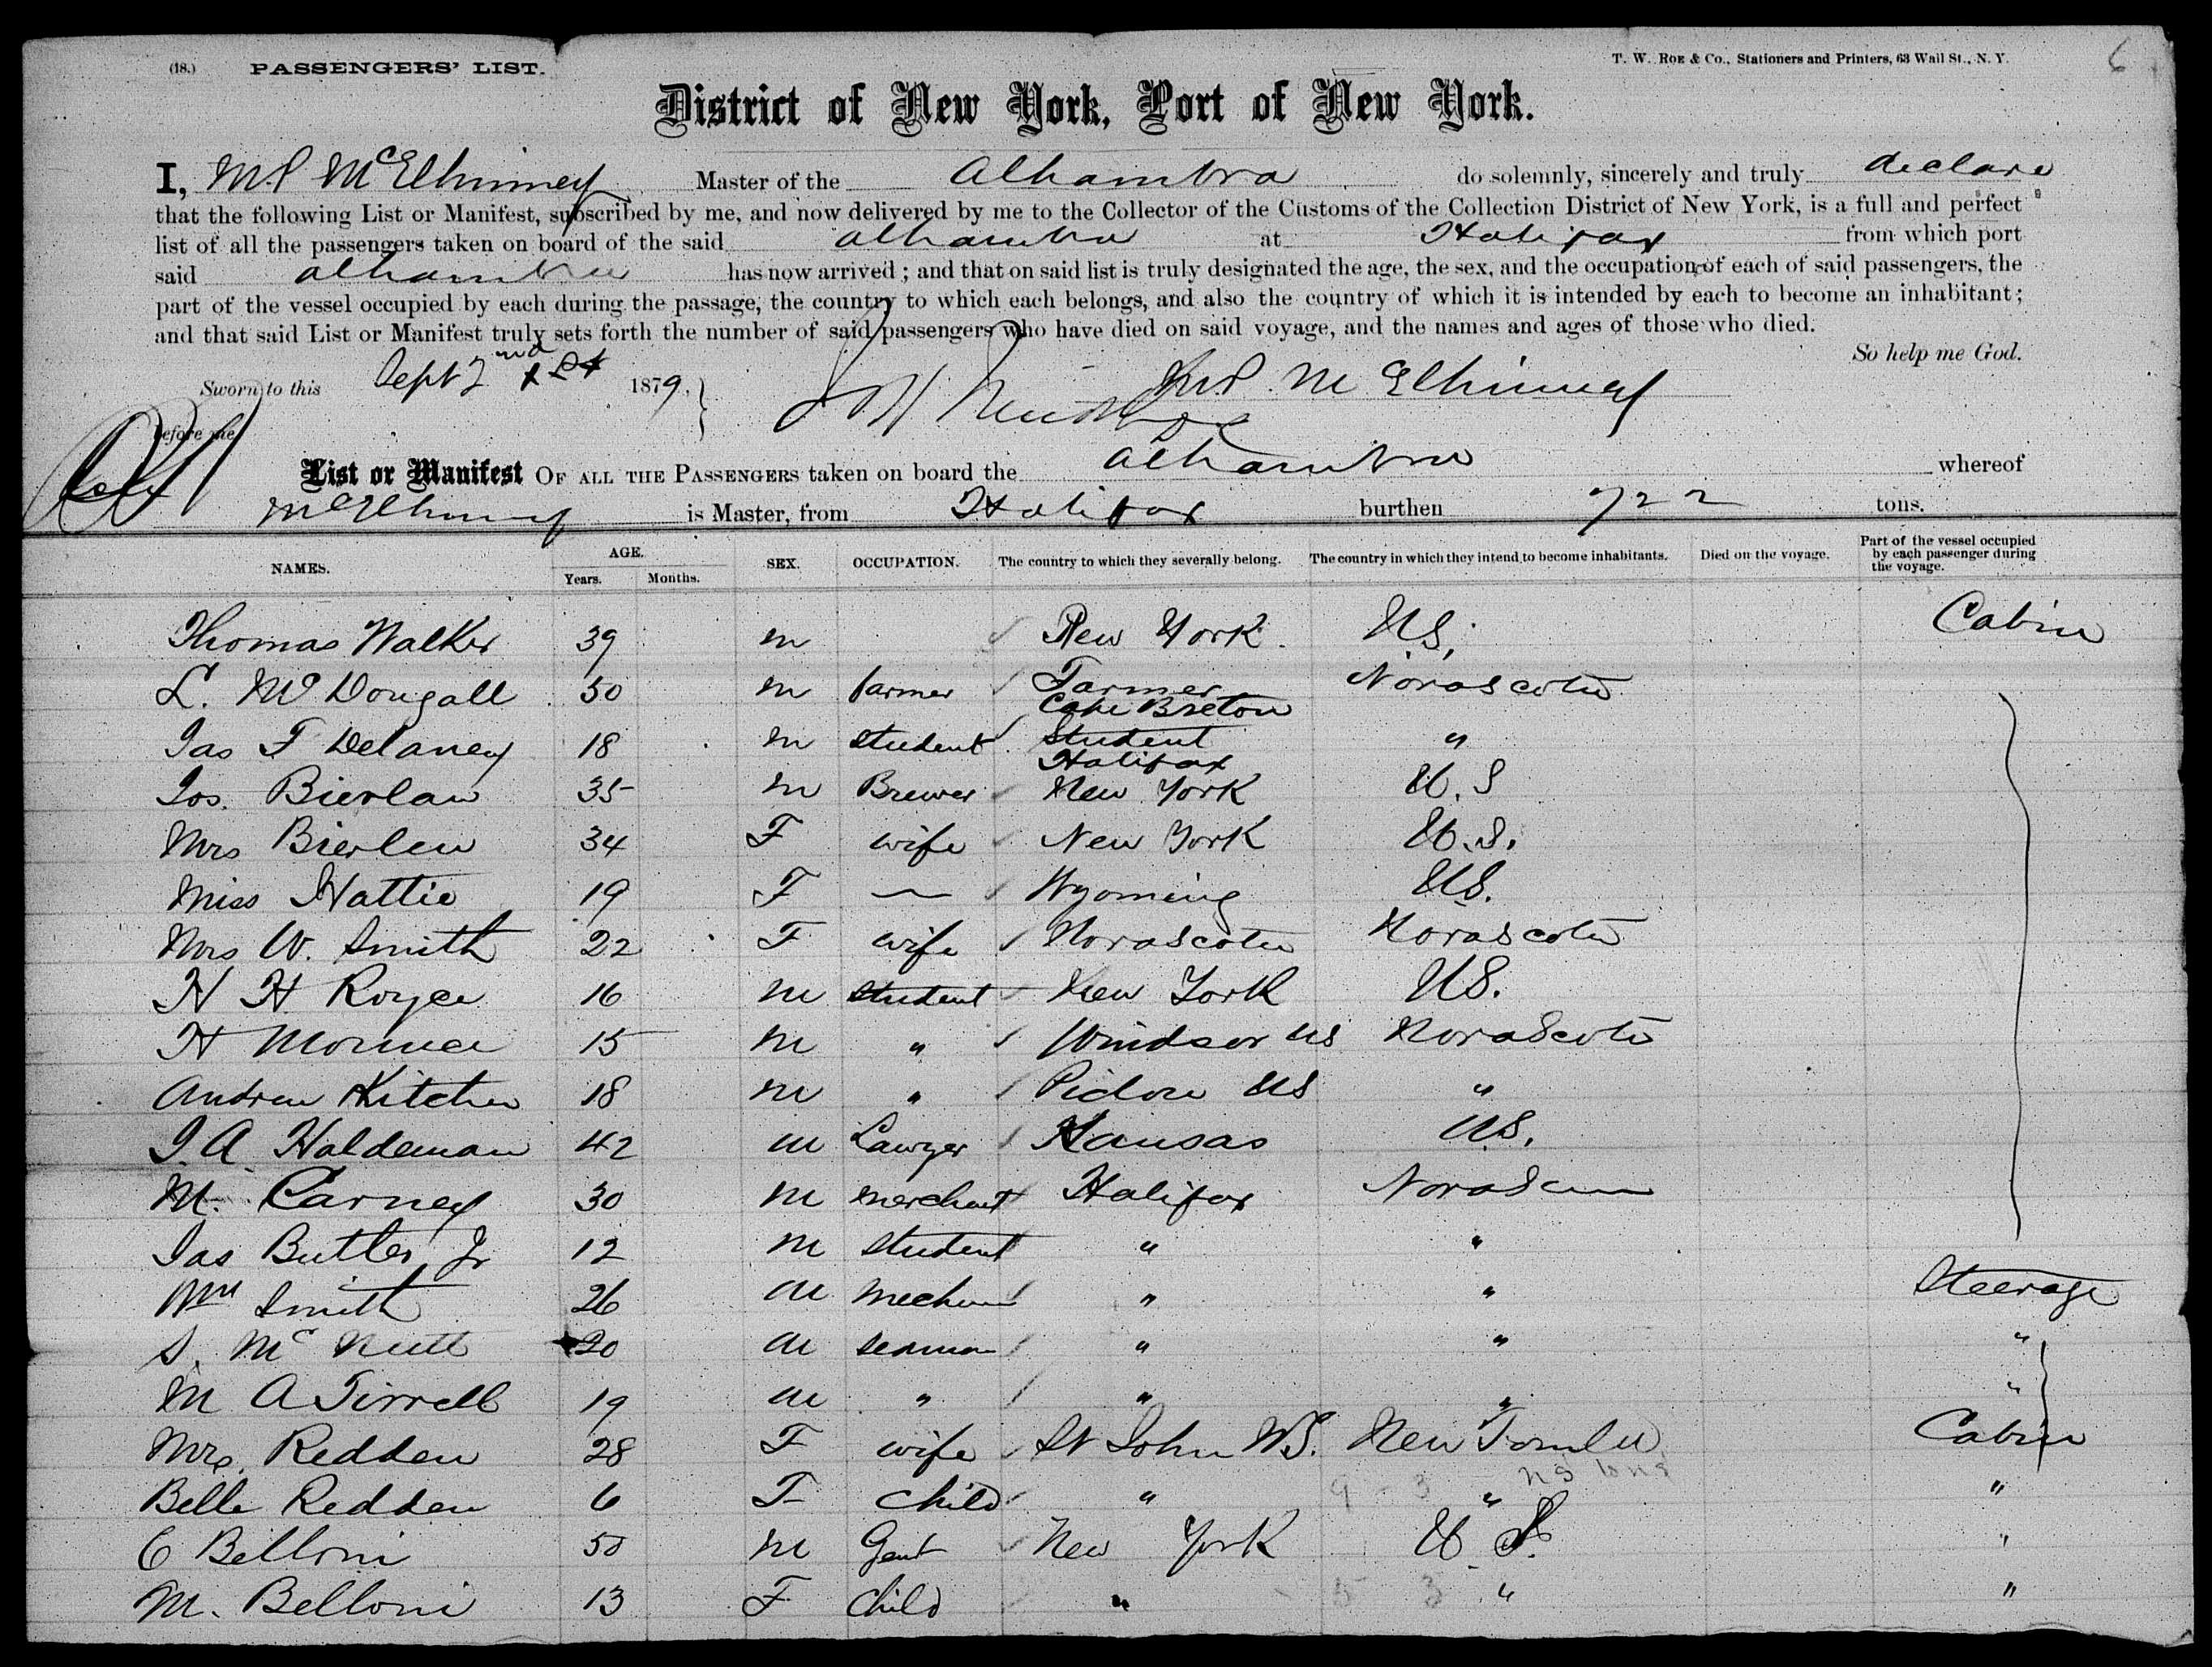 (18.) PASSENGERS' LIST.
T. W. Roe & Co., Stationers and Printers, 63 Wall St., N. Y.
6
District of New York, Port of New York.
I, M.P McElhinney Master of the Alhambra do solemnly, sincerely and truly declare
that the following List or Manifest, subscribed by me, and now delivered by me to the Collector of the Customs of the Collection District of New York, is a full and perfect
list of all the passengers taken on board of the said Alhambra at Halifax from which port
said Alhambra has now arrived; and that on said list is truly designated the age, the sex, and the occupation of each of said passengers, the
part of the vessel occupied by each during the passage, the country to which each belongs, and also the country of which it is intended by each to become an inhabitant;
and that said List or Manifest truly sets forth the number of said passengers who have died on said voyage, and the names and ages of those who died.
So help me God.
Sworn to this Sept 2nd 1st 1879. M McElhinney
before me
List or Manifest OF ALL THE PASSENGERS taken on board the Alhambra whereof
McElhinney is Master, from Halifax burthen 722 tons.
NAMES. AGE. Years. Months. SEX. OCCUPATION. The country to which they severally belong. The country in which they intend to become inhabitants. Died on the voyage. Part of the vessel occupied by each passenger during the voyage.
Thomas Walker 39 m New York. U.S. Cabin
L. McDougall 50 m farmer Farmer Cape Breton Novascotia
Jas F Delaney 18 m student Student Halifax "
Jos. Bierlan 35 m Brewer New York U.S
Mrs Bierlen 34 F wife New York U.S.
Miss Hattie 19 F — Wyoming U.S.
Mrs W. Smith 22 F wife Novascotia Novascotia
H H Royce 16 m student New York U.S.
H 15 m " Windsor NS NovaScotia
Andrew Kitchen 18 m " Pictou NS "
J. A. Haldeman 42 m Lawyer Kansas U.S.
M. Carney 30 m merchant Halifax Nova
Jas Butler Jr 12 m student " "
Wm Smith 26 m mechanic " " Steerage
S. McNutt 20 m seaman " " "
M A Tirrell 19 m " " " "
Mrs. Redden 28 F wife St John Cabin
Belle Redden 6 F child " " "
C Belloni 50 m Gent New York U.S. "
M. Belloni 13 F child " " "